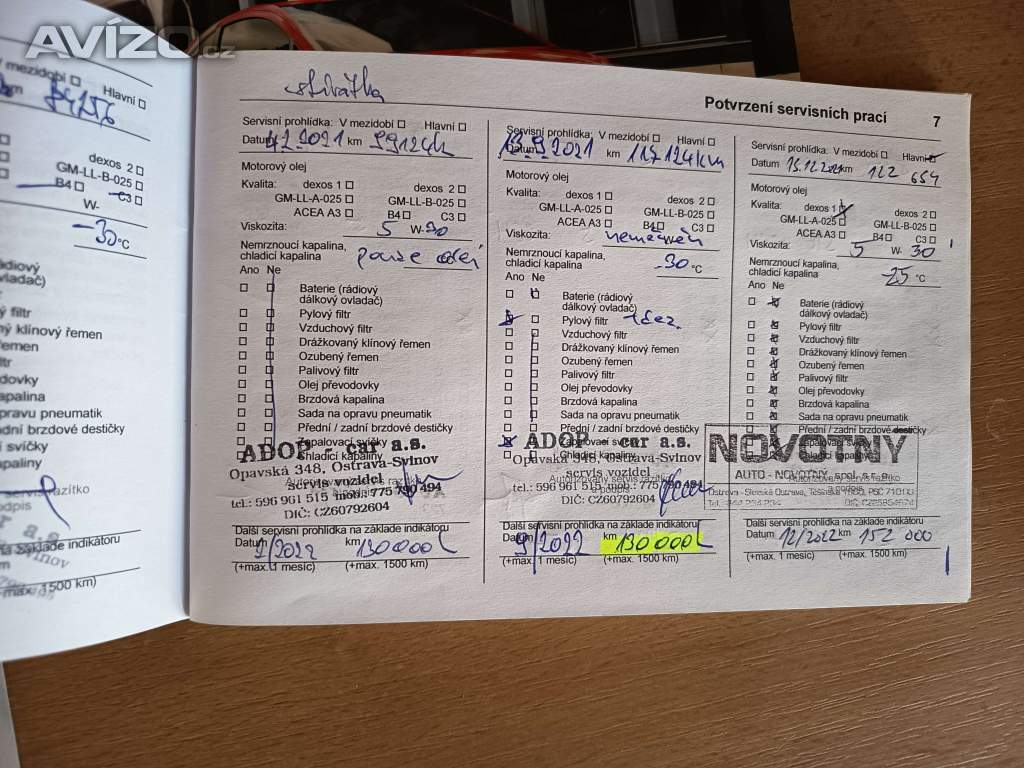 AVÍZO.cz
V mezidobí □ Hlavní □
84256
dexos 2 □
GM-LL-B-025 □
B4 □ C3 □
W-
-30 °C
ovladač)
ý filtr
ý klínový řemen
řemen
dovky
apalina
pravu pneumatik
dní brzdové destičky
í svíčky
apaliny
razítko
a základě indikátoru
1500 km)
Potvrzení servisních prací 7
Servisní prohlídka: V mezidobí □ Hlavní □
Datum 4.2.2021 km 99124k
Motorový olej
Kvalita: dexos 1 □ dexos 2 □
GM-LL-A-025 □ GM-LL-B-025 □
ACEA A3 □ B4 □ C3 □
Viskozita: 5 W-30
Nemrznoucí kapalina,
chladicí kapalina pouze olej
Ano Ne
Baterie (rádiový
dálkový ovladač)
Pylový filtr
Vzduchový filtr
Drážkovaný klínový řemen
Ozubený řemen
Palivový filtr
Olej převodovky
Brzdová kapalina
Sada na opravu pneumatik
Přední / zadní brzdové destičky
Zapalovací svíčky
Chladicí kapaliny
ADOP - car a.s.
Opavská 348, Ostrava-Svinov
servis vozidel
tel.: 596 961 515 mob.: 775 790 494
DIČ: CZ60792604
Další servisní prohlídka na základě indikátoru
Datum 2/2022 km 130000
(+max. 1 měsíc) (+max. 1500 km)
Servisní prohlídka: V mezidobí □ Hlavní □
Datum 13.9.2021 km 117124km
Motorový olej
Kvalita: dexos 1 □ dexos 2 □
GM-LL-A-025 □ GM-LL-B-025 □
ACEA A3 □ B4 □ C3 □
Viskozita: neměněn
Nemrznoucí kapalina,
chladicí kapalina -30 °C
Ano Ne
Baterie (rádiový
dálkový ovladač)
Pylový filtr
Vzduchový filtr
Drážkovaný klínový řemen
Ozubený řemen
Palivový filtr
Olej převodovky
Brzdová kapalina
Sada na opravu pneumatik
Přední / zadní brzdové destičky
Zapalovací svíčky
Chladicí kapaliny
ADOP - car a.s.
Opavská 348, Ostrava-Svinov
servis vozidel
Autorizovaný servis razítko
a podpis
tel.: 596 961 515 mob.: 775 790 494
DIČ: CZ60792604
Další servisní prohlídka na základě indikátoru
Datum 9/2022 km 130000
(+max. 1 měsíc) (+max. 1500 km)
Servisní prohlídka: V mezidobí □ Hlavní □
Datum 15.12.2021 km 122 654
Motorový olej
Kvalita: dexos 1 □ dexos 2 □
GM-LL-A-025 □ GM-LL-B-025 □
ACEA A3 □ B4 □ C3 □
Viskozita: 5 W- 30
Nemrznoucí kapalina,
chladicí kapalina -25 °C
Ano Ne
Baterie (rádiový
dálkový ovladač)
Pylový filtr
Vzduchový filtr
Drážkovaný klínový řemen
Ozubený řemen
Palivový filtr
Olej převodovky
Brzdová kapalina
Sada na opravu pneumatik
Přední / zadní brzdové destičky
Zapalovací svíčky
Chladicí kapaliny
NOVOTNÝ
AUTO - NOVOTNÝ, spol. s r.o.
Další servisní prohlídka na základě indikátoru
Datum 12/2022 km 152 000
(+max. 1 měsíc) (+max. 1500 km)